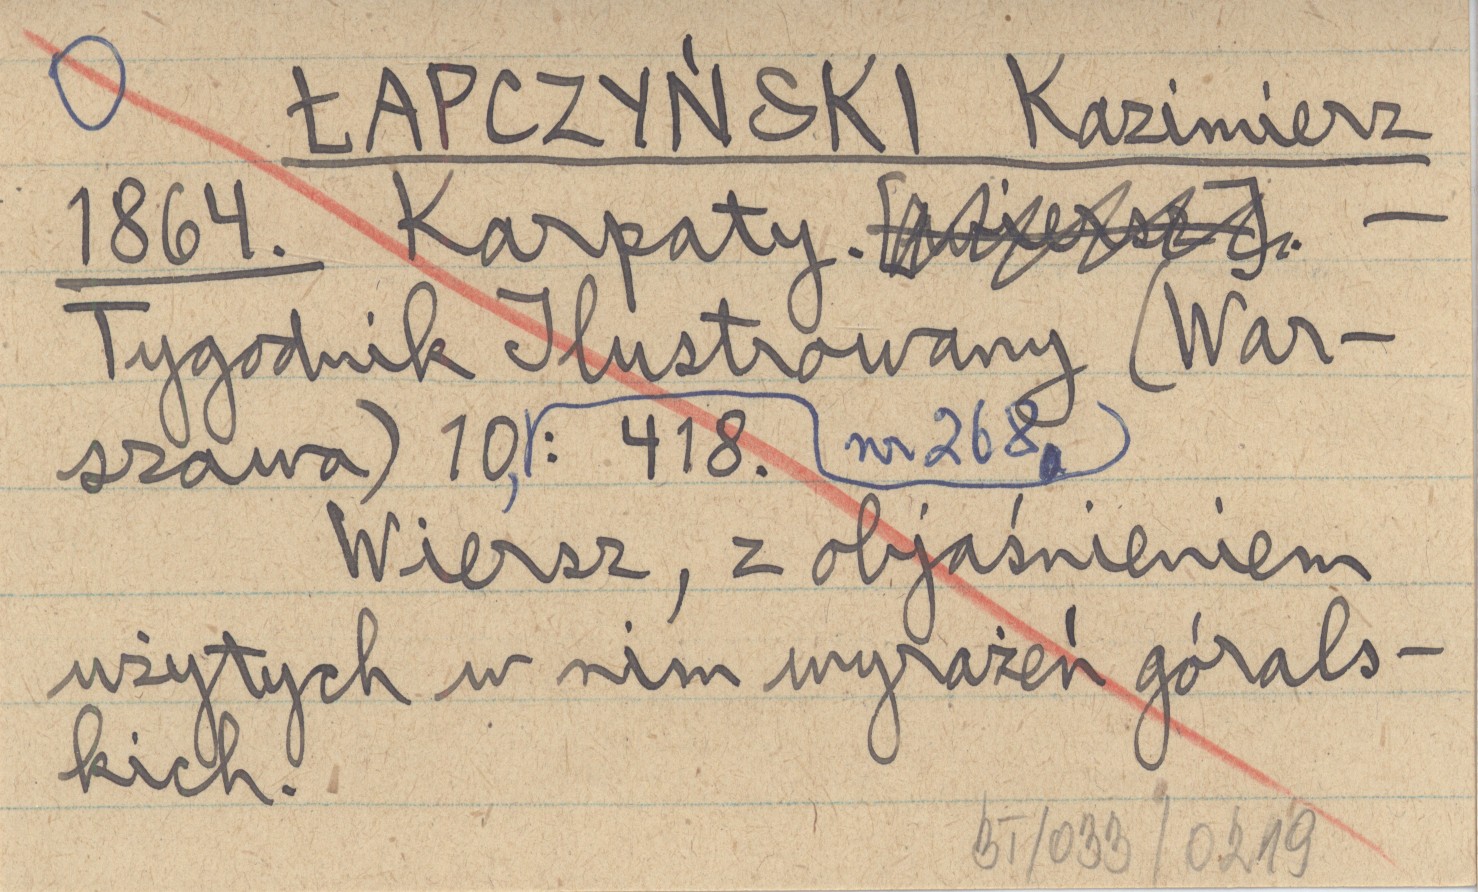 ŁAPCZYŃSKI Kazimierz
1864. Karpaty. [wiersz]. —
Tygodnik Ilustrowany (War-
szawa) 10, : 418. nr 268,
Wiersz, z objaśnieniem
użytych w nim wyrażeń górals-
kich.
BI/033/0219